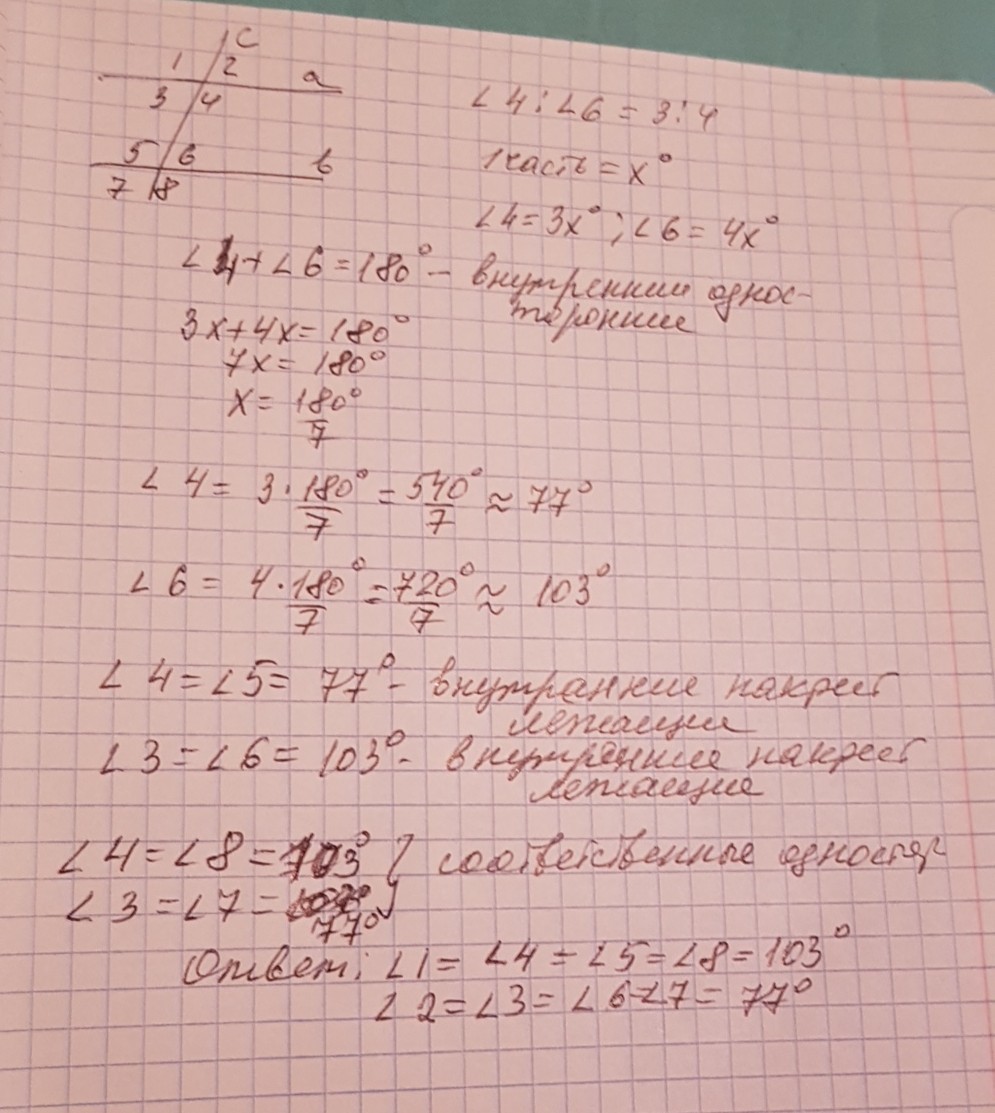 c
1 2 a
3 4
5 6 b
7 8
∠4 : ∠6 = 3 : 4
1 часть = x°
∠4 = 3x° ; ∠6 = 4x°
∠4 + ∠6 = 180° - внутренние однос-
торонние
3x + 4x = 180°
7x = 180°
x = 180°/7
∠4 = 3 · 180°/7 = 540°/7 ≈ 77°
∠6 = 4 · 180°/7 = 720°/7 ≈ 103°
∠4 = ∠5 = 77° - внутранние накрест
лежащии
∠3 = ∠6 = 103° - внутренние накрест
лежащие
∠4 = ∠8 = 103° } соответственные одностор
∠3 = ∠7 =
77°
Ответ: ∠1 = ∠4 = ∠5 = ∠8 = 103°
∠2 = ∠3 = ∠6 = ∠7 = 77°